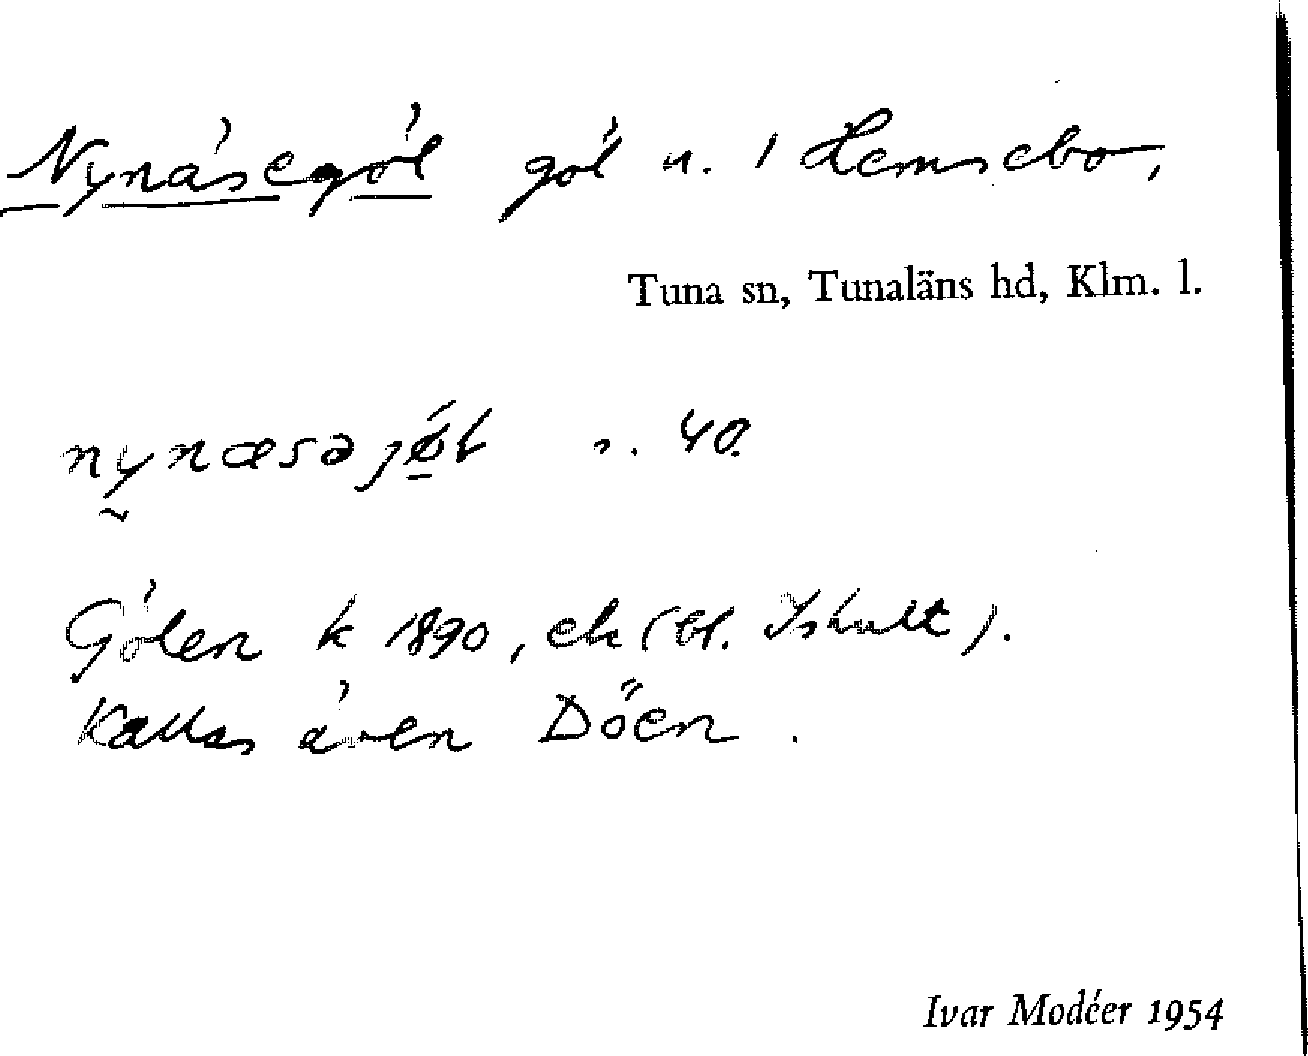 Nynäsegöl göl n. i Hemsebo,
Tuna sn, Tunaläns hd, Klm. l.
nynæsəjøl s. 40.
Gölen k 1890, ek (bl. Ishult).
Kallas även Döen.
Ivar Modéer 1954